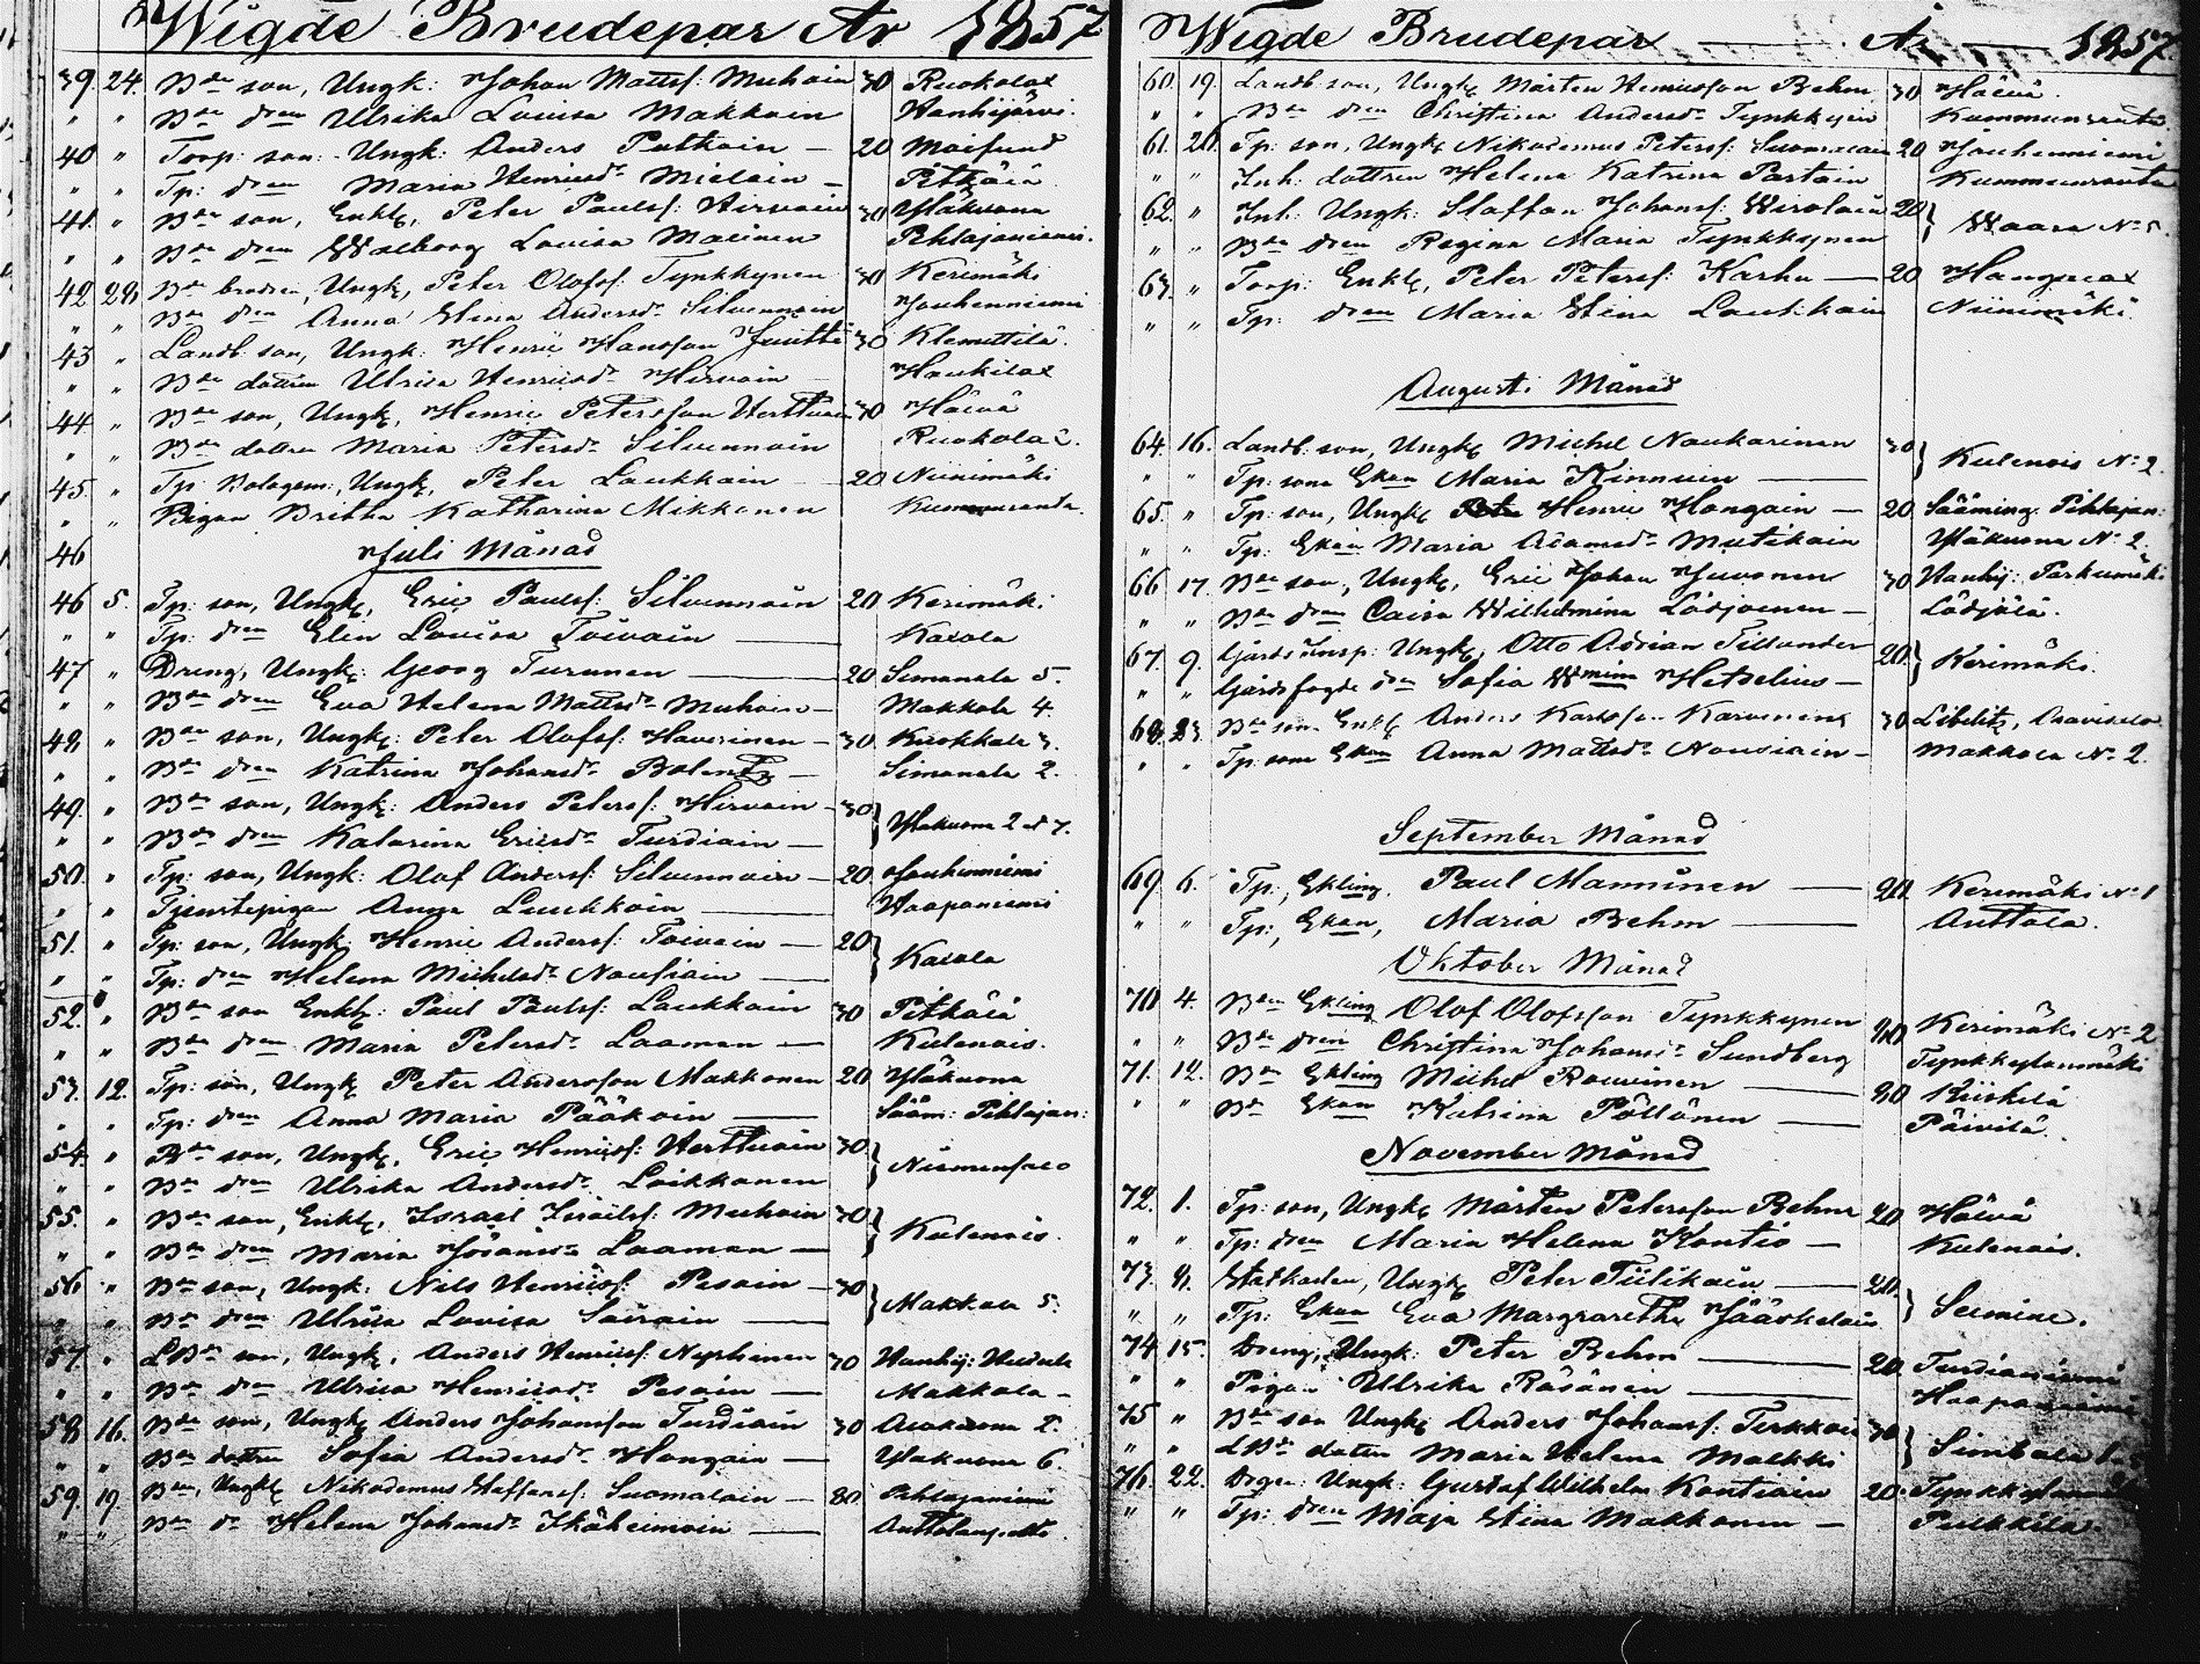 Wigde Brudepar År 1857
39. 24. Bde son, Ungk: Johan Mattss: Muhoin 30 Ruokolax
" " Bde dren Ulrika Lovisa Makkoin Hanhijärvi.
40 " Torp: son: Ungk: Anders Putkoin — 20 Moisund
" " Tp: dren Maria Henricsdr Mieloin — Pitkälä
41. " Bde son, Enkl, Peter Paulss: Hirvoin 30 Yläkuona
" " Bde dren Walborg Lovisa Malinen Pihlajaniemi.
42 28, Bde brodren, Ungk, Peter Olofss: Tynkkynen 30 Kerimäki
" " Bde dren Anna Stina Andersdr Silvennoin Jouhenniemi
43 " Landb: son, Ungk: Henric Hansson Juutti 30 Klemettilä.
" " Bde dottren Ulrica Henricsdr Hirvoin — Haukilax
44. " Bde son, Ungk, Henric Petersson Herttuain 30 Hälvä
" " Bde dottren Maria Petersdr Silvennoin Ruokola 2.
45. " Tp Bolagsm:, Ungk, Peter Laukkain 20 Niinimäki
" " Pigan Britha Katharina Mikkonen Kummunranta.
46 Juli Månad
46 5. Tp: son, Ungk, Eric Paulss: Silvennoin 20 Kerimäki
" " Tp: dren Elin Lovisa Toivain — Raxola
47 " Dreng, Ungk: Georg Turunen — 20 Simanala 5.
" " Bde dren Eva Helena Mattsdr Muhoin — Makkola 4.
48, " Bde son, Ungk: Peter Olofss: Haverinen — 30. Kuokkala 3.
" " Bde dren Katrina Johansdr Bolentz — Simanala 2.
49. " Bde son, Ungk: Anders Peterss: Hirvoin — 30 } Yläkuona 2 o 7.
" " Bde dren Katarina Ericsdr Turdiain —
50. " Tp: son, Ungk: Olof Anderss: Silvennoin — 20. Jouhenniemi
" " Tjenstepigan Anna Luukkoin — Haapaniemi
51. " Tp: son, Ungk: Henric Anderss: Toivain — 20 } Raxola
" " Tp: dren Helena Michelsdr Nousiain —
52. " Bde son Enkl: Paul Paulss: Laukkain 30 Pitkälä
" " Bde dren Maria Petersdr Laaman — Kulennois.
53. 12. Tp: son, Ungk Peter Andersson Makkonen 20 Yläkuona
" " Tp: dren Anna Maria Pääkoin — Sääm: Pihlajan:
54. " Bde son, Ungk, Eric Henricss: Herttuain 30 } Niemensalo
" " Bde dren Ulrika Andersdr Loikkanen
55. " Bde son, Enkl, Israel Israelss: Muhoin 30 } Kulennois.
" " Bde dren Maria Johansdr Laaman —
56 " Bde son, Ungk: Nils Henricss: Pesoin — 30 } Makkola 5.
" " Bde dren Ulrica Lovisa Soirain —
57. " LBde son, Ungk, Anders Henricss: Nyyhönen 30 Hanhij: Huduls
" " Bde dren Ulrica Henricsdr Pesoin — Makkola —
58, 16. Bde son, Ungk Anders Johansson Turdiain 30 Alakuona 2.
" " Bde dottren Sofia Andersdr Hongain — Yläkuona 6.
59. 19 Bde, Ungkl Nikodemus Staffanss: Suomalain — 30. Pihlajaniemi
" " Bde dr Helena Johansdr Ikäheimoin — Anttola
Wigde Brudepar — År — 1857.
60. 19. Landb: son, Ungk Mårten Henricsson Behm 30 Hälvä.
" " Bde dren Christina Andersdr Tynkkynen Kummunranta
61. 20. Tp: son, Ungk Nikodemus Peterss: Suomalain 20 Jouhenniemi
" " Inh: dottren Helena Katrina Partain Kummunranta
62. " Inh: Ungk: Staffan Johanss: Wirolain 20 } Waara No 5.
" " Bde dren Regina Maria Tynkkynen
63, " Torp: Enkl, Peter Peterss: Karhu — 20 Haapalax
" " Tp: dren Maria Stina Laukkain Niinimäki.
Augusti Månad
64. 16. Landb: son, Ungk Michel Naukarinen 30 } Kulennois No 2.
" " Tp: sons Ekan Maria Kinnuin —
65. " Tp: son, Ungk Henric Hongain — 20 Sääming. Pihlajan:
" " Tp: Ekan Maria Adamsdr Mutikain Yläkuona No 2.
66 17. Bde son, Ungk, Eric Johan Juvonen 30 Hanhij: Parkumäki
" " Bde dren Caisa Wilhelmina Lödjoinen — Lödjölä.
67. 9. Gårds Insp: Ungk, Otto Adrian Tillander 20. } Kerimäki.
" " Gårdsfogde drn Sofia Wmina Hetselius —
68. 23. Bde son Enkl Anders Karlsson Karvonen 30 Libelitz,
" " Tp: sons Ekan Anna Mattsdr Nousiain — Makkola No 2.
September Månad
69 6. Tp:, Ekling, Paul Manninen — 20. Kerimäki No 1
" " Tp:, Ekan, Maria Behm — Anttola.
Oktober Månad
70 4. Bden Ekling Olof Olofsson Tynkkynen 30 Kerimäki No 2
" " Bde dren Christina Johansdr Sundberg Tynkkylänmäki
71. 12. Bde Ekling Michel Rouvinen — 20 Kiiskilä
" " Bde Ekan Katrina Pöllänen — Päivilä.
November Månad
72. 1. Tp: son, Ungk Mårten Petersson Behm 20 Hälvä
" " Tp: dren Maria Helena Kontio — Kulennois.
73. 8, Statkarlen, Ungk Peter Tiilikain — 20. } Seimine.
" " Tp: Ekan Eva Margaretha Jääskeläin
74 15. Dreng, Ungk: Peter Behm — 20 Turdianiemi
" " Pigan Ulrika Räsänen — Haapaniemi
75 " Bde son Ungk Anders Johanss: Turkkoi 30 } Simbala
" " LBde dottren Maria Helena Malkki
76. 22. Dreng: Ungk: Gustaf Wilhelm Kontiain 20.
" " Tp: dren Maja Stina Makkonen — Pulkkila.